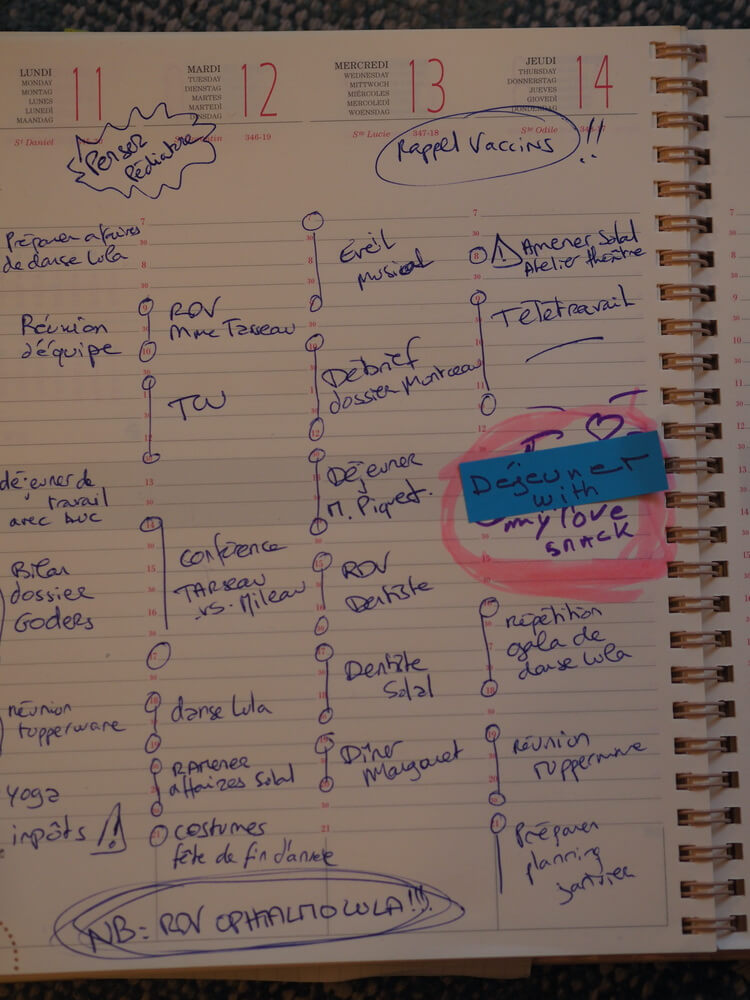 LUNDI
MONDAY
MONTAG
LUNES
LUNEDÌ
MAANDAG
11
St Daniel
Penser
Pédiatre
Préparer affaires
de danse Lola
Réunion
d'équipe
déjeuner de
travail
avec Luc
Bilan
dossier
Goders
réunion
tupperware
Yoga
impôts !
MARDI
TUESDAY
DIENSTAG
MARTES
MARTEDÌ
DINSDAG
12
346-19
7
30
8
30
9
RDV
Mme Tasseau
30
10
30
11
30
12
30
13
30
14
conférence
TARSEAU
vs. Mileau
30
15
30
16
30
17
30
18
danse Lola
30
19
30
20
Ramener
affaires Solal
30
21
costumes
fête de fin d'année
MERCREDI
WEDNESDAY
MITTWOCH
MIÉRCOLES
MERCOLEDÌ
WOENSDAG
13
Ste Lucie
347-18
Rappel Vaccins !!
Éveil
musical
Débrief
dossier Montceau
Déjeuner
M. Piquet.
RDV
Dentiste
Dentiste
Solal
Dîner
Margaret
21
JEUDI
THURSDAY
DONNERSTAG
JUEVES
GIOVEDÌ
DONDERDAG
14
Ste Odile
7
30
8
! Amener Solal
Atelier théâtre
30
9
Télétravail
30
10
30
11
Déjeuner
with
my love
snack
répétition
gala de
danse Lola
réunion
tupperware
Préparer
planning
janvier
NB = RDV OPHTALMO LOLA !!!